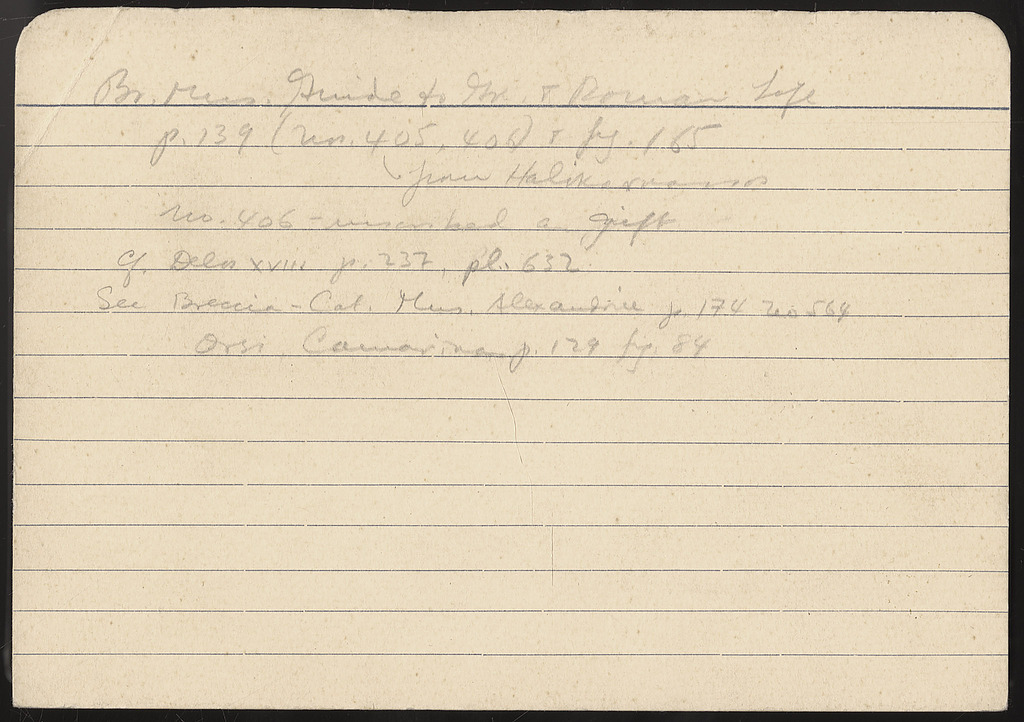 Br. Mus. Guide to Gr. & Roman Life
p. 139 (nos. 405, 406) & fig. 165
from Halikarnassos
no. 406 - inscribed a gift
Cf. Delos XVIII p. 237, pl. 632
See Breccia - Cat. Mus. Alexandrie p. 174 no 564
Orsi Camarina p. 129 fig. 84